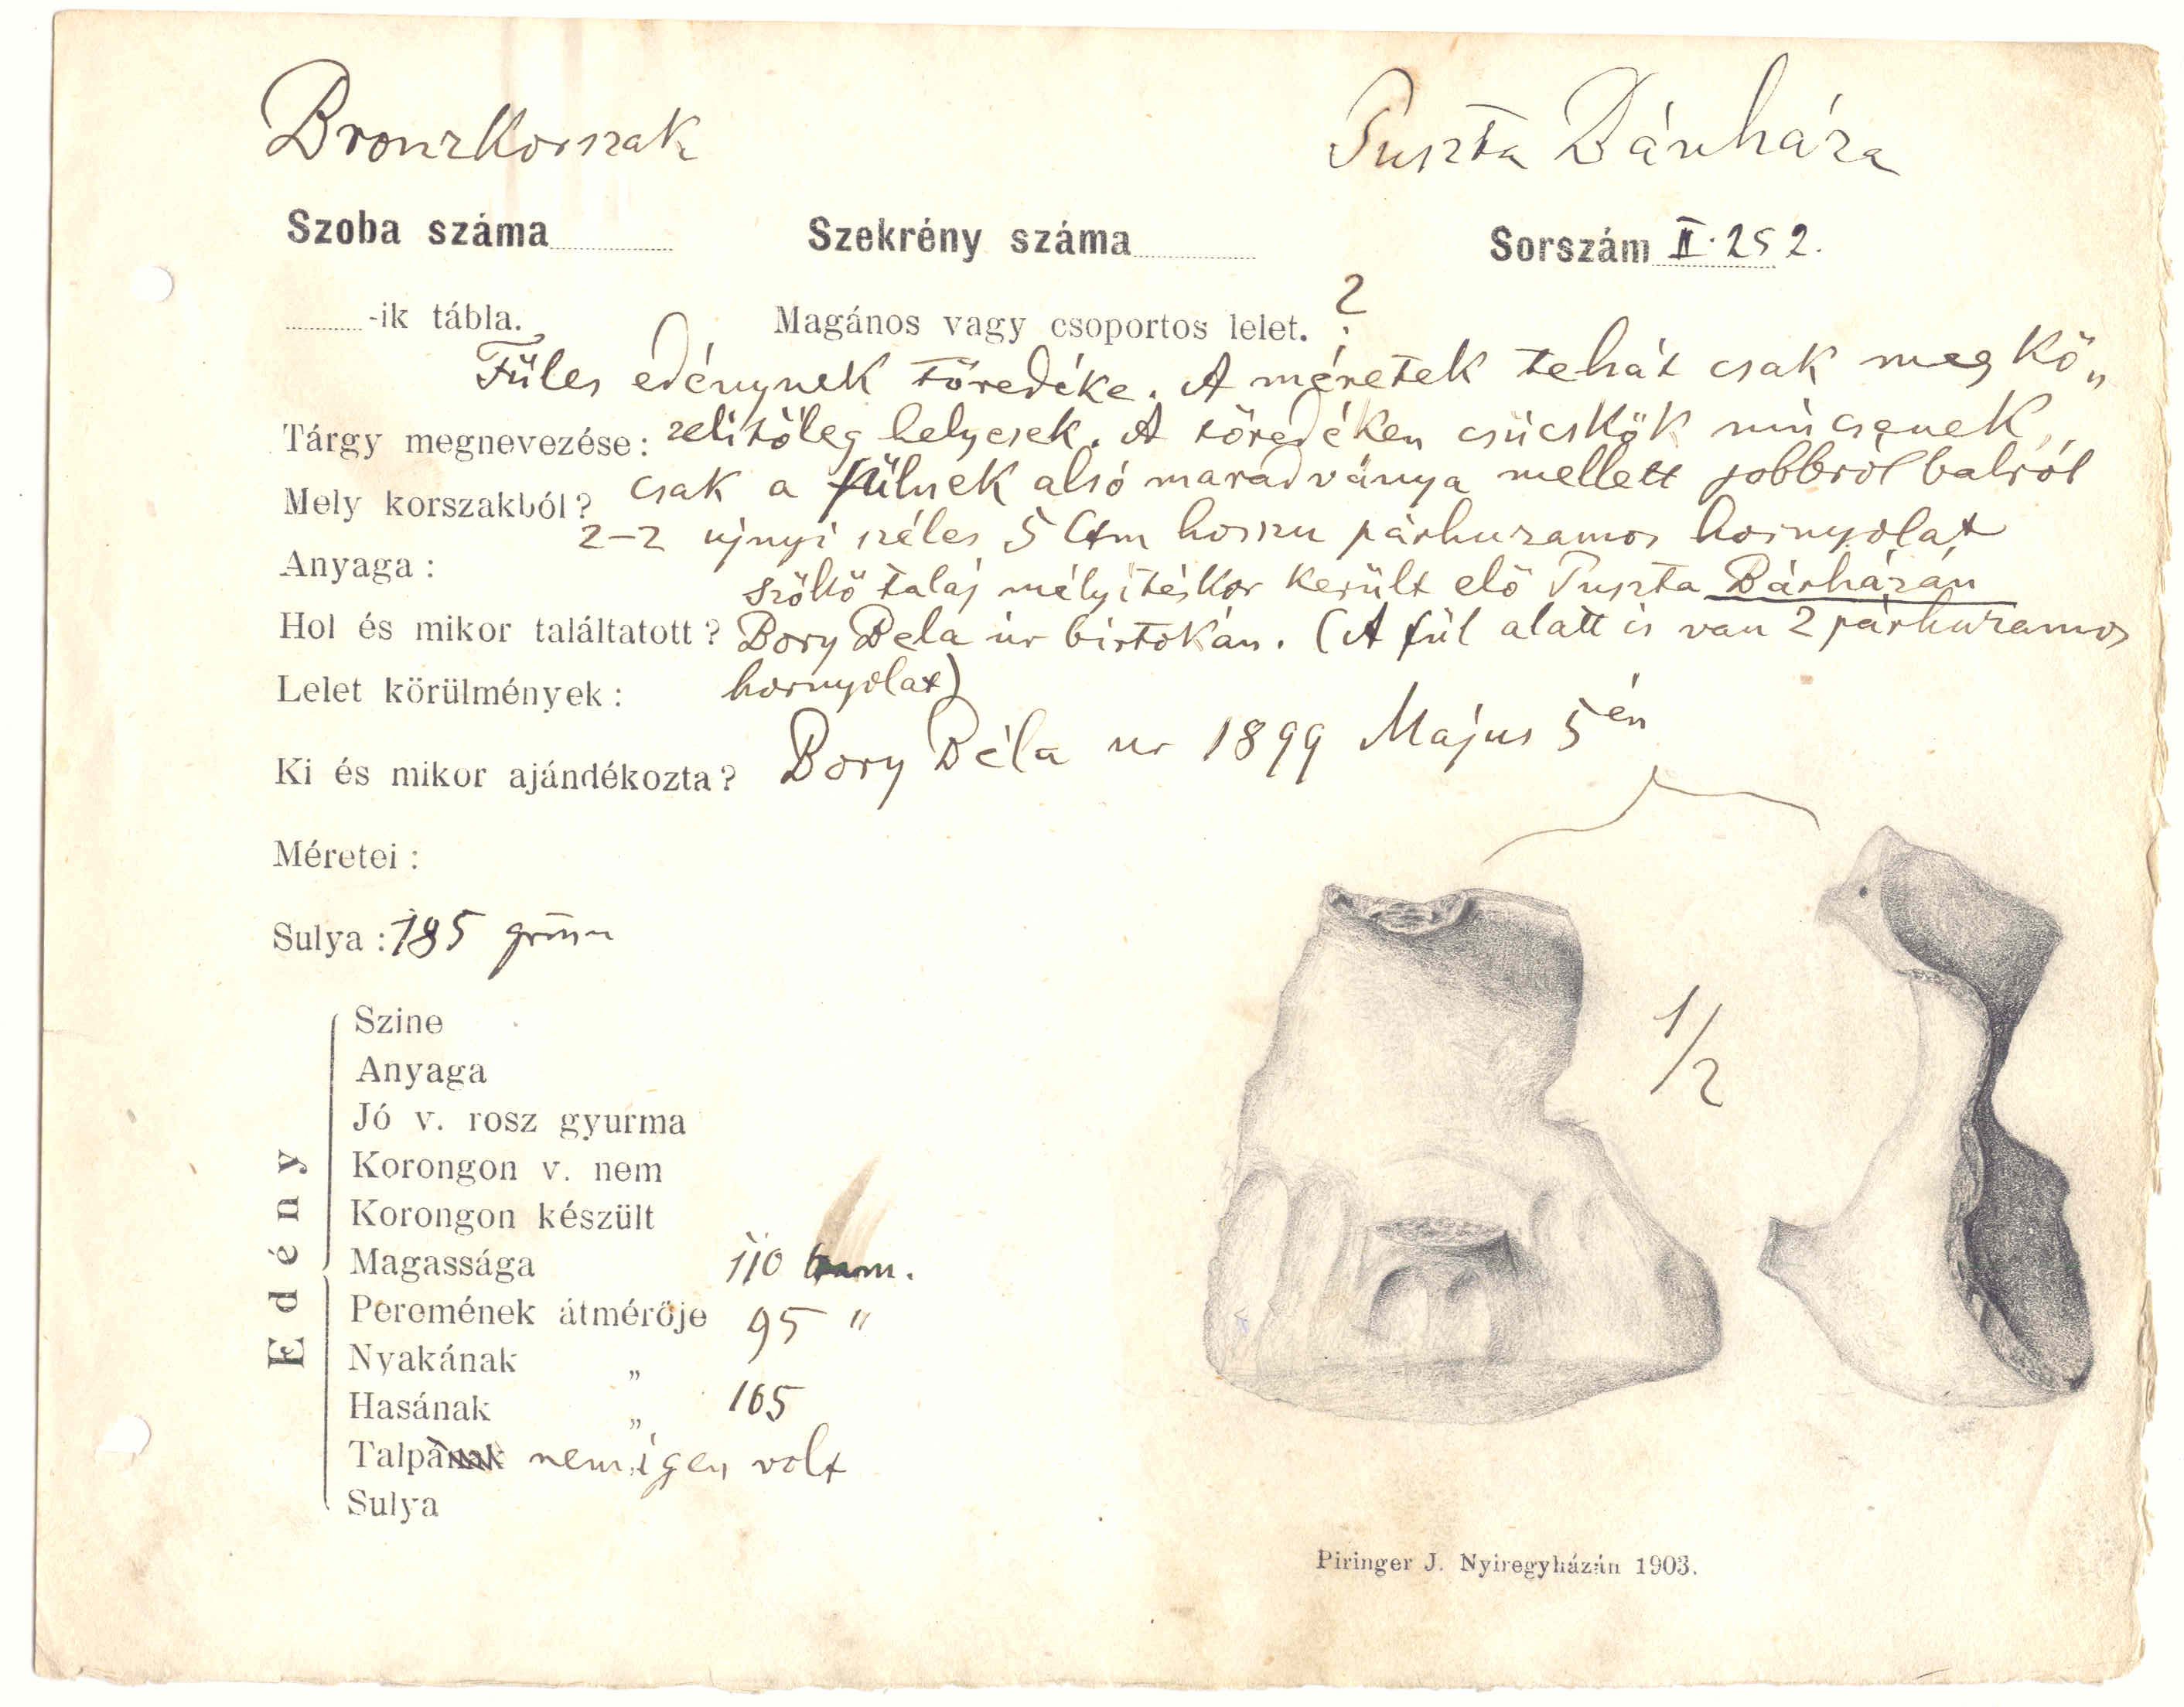 Bronzkorszak
Puszta Bánháza
Szoba száma
Szekrény száma
Sorszám II. 252.
-ik tábla.
Magános vagy csoportos lelet. ?
Füles edénynek töredéke. A méretek tehát csak meg kö„
Tárgy megnevezése: zelitőleg helyesek. A töredéken csücskök nincsenek,
Mely korszakból? csak a fülnek alsó maradványa mellett jobbról balról
2-2 ujnyi széles 5 Ctm hosszu párhuzamos hornyolat
Anyaga:
szőlő talaj mélyitéskor került elő Puszta Bánházán
Hol és mikor találtatott? Bory Bela úr birtokán. (A fül alatt is van 2 párhuzamos
Lelet körülmények: hornyolat)
Ki és mikor ajándékozta? Bory Béla ur 1899 Május 5én
Méretei:
Sulya: 185 gramm
1/2
Edény
Szine
Anyaga
Jó v. rosz gyurma
Korongon v. nem
Korongon készült
Magassága 110 mm.
Peremének átmérője 95 "
Nyakának „
Hasának „ 165
Talpának nem igen volt
Sulya
Piringer J. Nyiregyházán 1903.